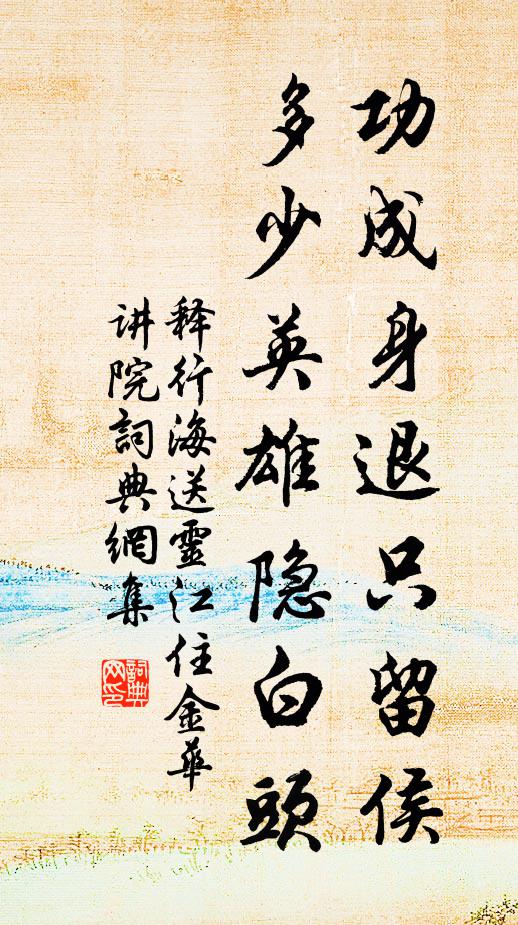 功成身退只留侯
多少英雄隐白頭
释行海送靈江住金華
讲院詞典網集
詞典網印